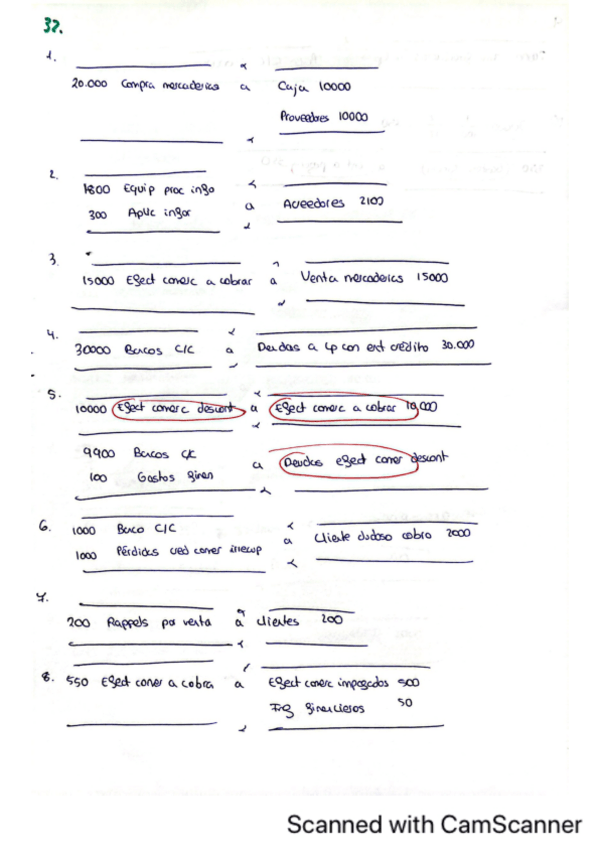 37.
1.
20.000 Compra mercaderias a Caja 10000
Proveedores 10000
2.
1800 Equip proc info a Acreedores 2100
300 Aplic infor
3.
15000 Efect comerc a cobrar a Venta mercaderias 15000
4.
30000 Bancos C/C a Deudas a lp con ent crédito 30.000
5.
10000 Efect comerc descont a Efect comerc a cobrar 10,000
9900 Bancos c/c a Deudas efect comer descont
100 Gastos finan
6. 1000 Banco C/C a Cliente dudoso cobro 2000
1000 Pérdidas cred comer incecup
7.
200 Rappels por venta a clientes 200
8. 550 Efect comer a cobra a Efect comerc impagados 500
Ing financieros 50
Scanned with CamScanner